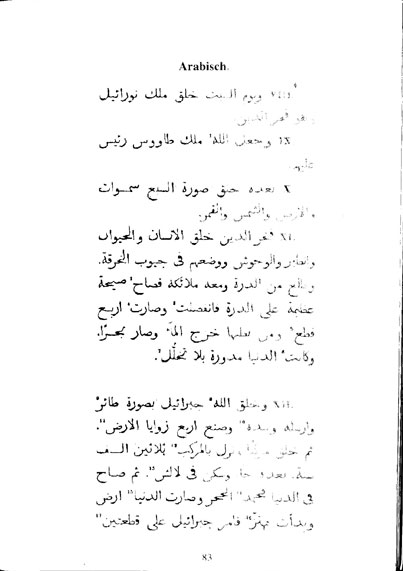 Arabisch.
ويوم السبت خلق ملك نورائيل
وهو فخر الدين.
IX وجعل الله ملك طاووس رئيس
عليهم.
X بعده خلق صورة السبع سموات
والارض والشمس والقمر.
XI فخر الدين خلق الانسان والحيوان
والطير والوحوش ووضعهم فى جيوب الخرقة.
وطلع من الدرة ومعه ملائكة فصاح صيحة
عظيمة على الدرة فانفصلت وصارت اربع
قطع ومن بطنها خرج الماء وصار بحرا.
وكانت الدنيا مدورة بلا تخلّل.
XII وخلق الله جبرائيل بصورة طائر
وارسله وصنع اربع زوايا الارض.
ثم خلق بالمركب ثلاثين الف
سنة. بعده جا وسكن فى لالش. ثم صاح
فى الدنيا الحجر وصارت الدنيا ارض
وبدأت تهتزّ فامر جبرائيل على قطعتين
83